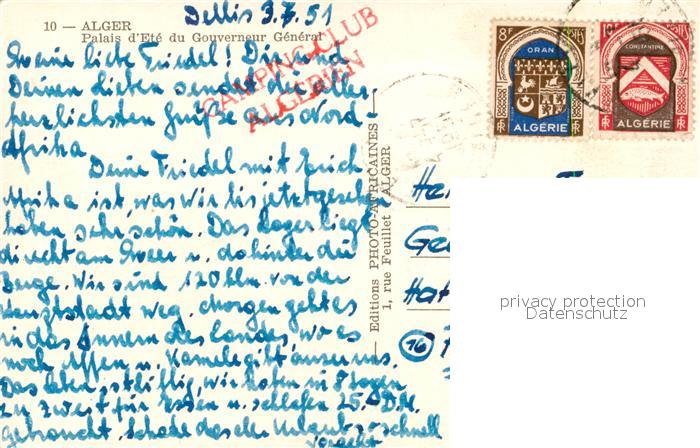 Dellis 3.7.51
10 — ALGER
Palais d'Eté du Gouverneur Général
CAMPING-CLUB
ALGERIEN
Meine liebe Friedel! Dir und
Deinen Lieben sendet die aller-
herzlichsten Grüße aus Nord-
Afrika
Deine Friedel mit Erich
Afrika ist, was wir bis jetzt gesehen
haben sehr schön. Das Lager liegt
direkt am Meer u. dahinter die
Berge. Wir sind 120 klm. von der
Hauptstadt weg. Morgen geht es
in das Innern des Landes, wo es
noch Affen u. Kamele gibt ausser uns.
Das Leben ist billig, wir haben in 8 Tagen
zu zweit für Essen u. schlafen 25.- D.M.
gebraucht. Schade das der Urlaub so schnell
vergeht
Editions PHOTO-AFRICAINES
1, rue Feuillet - ALGER
8F POSTES
ORAN
RF ALGÉRIE RF
10F POSTES
CONSTANTINE
RF ALGÉRIE RF
Ha
Ge
Hat
(16)
privacy protection
Datenschutz